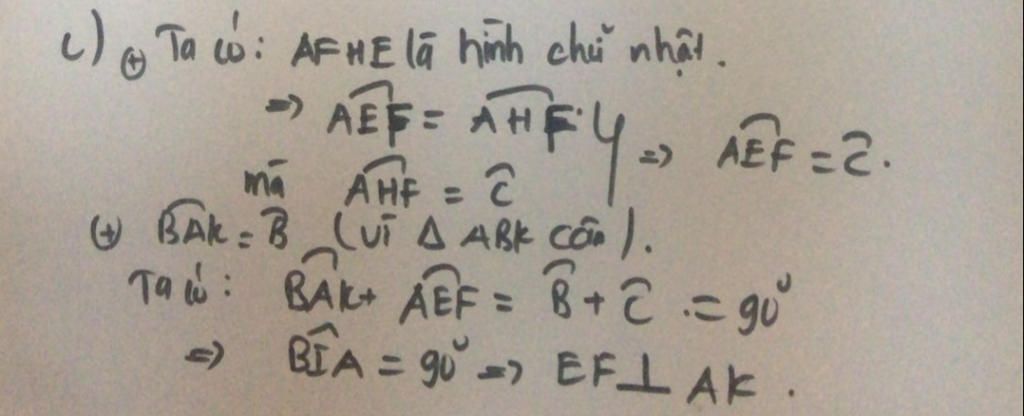 c) ⊕ Ta có: AFHE là hình chữ nhật.
=> \widehat{AEF} = \widehat{AHF} } => \widehat{AEF} = \widehat{C}.
mà \widehat{AHF} = \widehat{C}
⊕ \widehat{BAK} = \widehat{B} (vì Δ ABK cân).
Ta có: \widehat{BAK} + \widehat{AEF} = \widehat{B} + \widehat{C} = 90°
=> \widehat{BIA} = 90° => EF ⊥ AK.